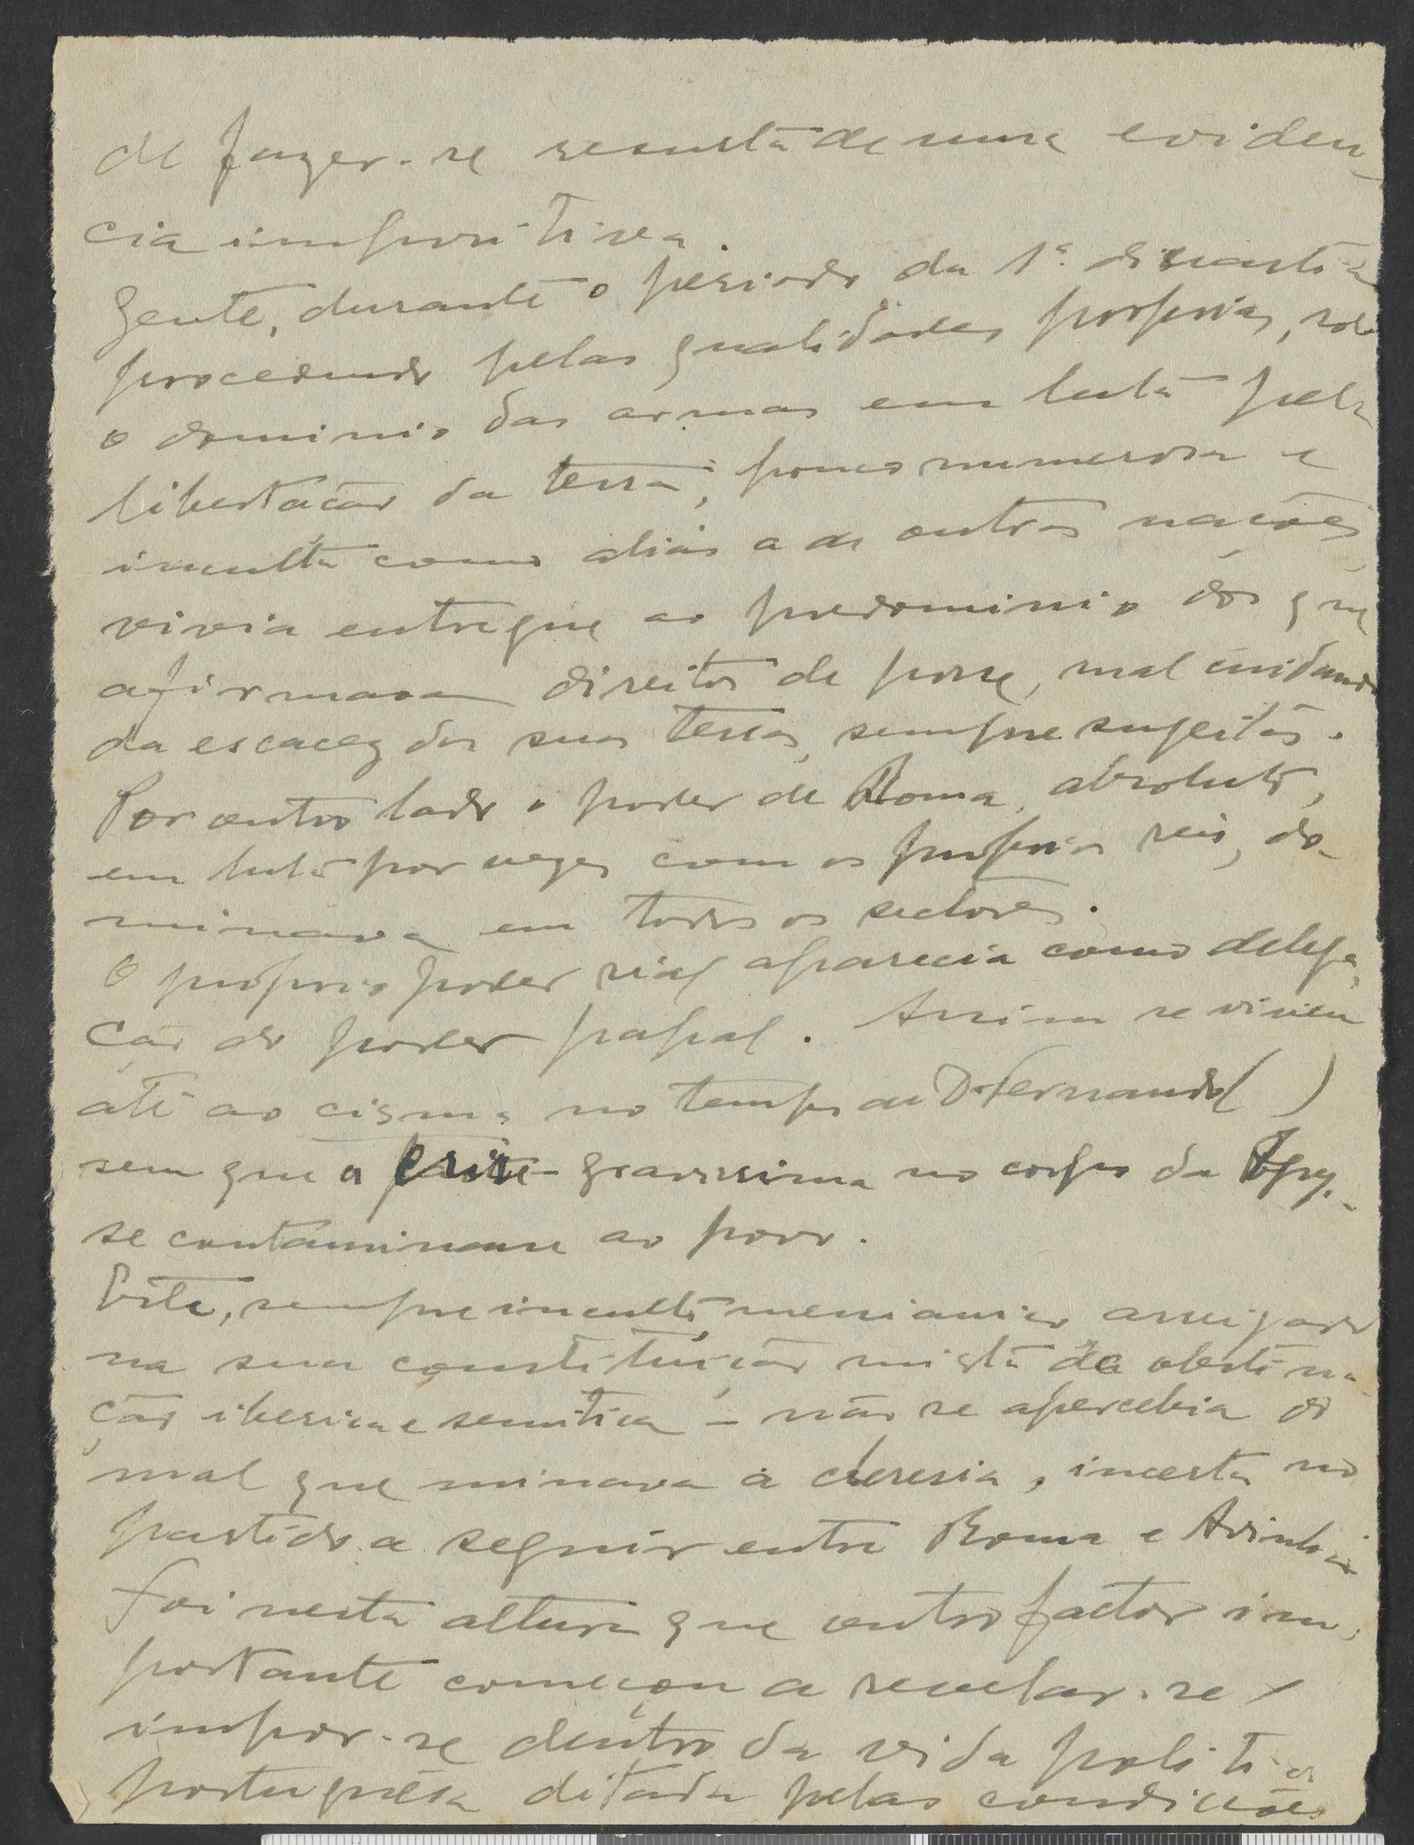 de fazer-se resulta de uma eviden-
cia impositiva.
Gente, durante o periodo da 1ª dinastia
procedendo pelas qualidades proprias, sob
o dominio das armas em luta pela
libertação da terra; pouco numerosa e
inculta como aliás a de outras nações,
vivia entregue ao predominio dos que
afirmavam direitos de posse, mal cuidando
da escacez das suas terras, sempre sugeitas.
Por outro lado o poder de Roma, absoluto,
em luta por vezes com os proprios reis, do-
minava em todos os sectores.
O proprio poder rial aparecia como delega-
ção do poder papal. Assim se viveu
até ao cisma no tempo de D. Fernando ( )
sem que a crise gravissima no corpo da Igrj.
se contaminasse ao povo.
Este, sempre inculto, messianico arreigado
na sua constituição mista da obstina-
ção iberica e semitica – não se apercebia do
mal que minava a cleresia, incerta no
partido a seguir entre Roma e Avinhão
Foi nesta altura que outro factor im-
portante começou a revelar-se /
impor-se dentro da vida politica
portuguêsa ditada pelas condições